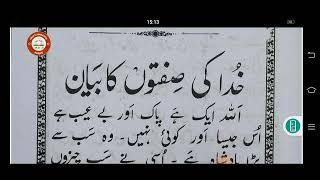 15:13
خُدا کی صِفتوں کا بَیان
اللہ ایک ہَے پاک اَور بے عیب ہے
اُس جیسا اَور کوئی نہیں۔ وہ سَب سے
بڑا بادشاہ ہَے۔ اُسی نے سَب چیزوں